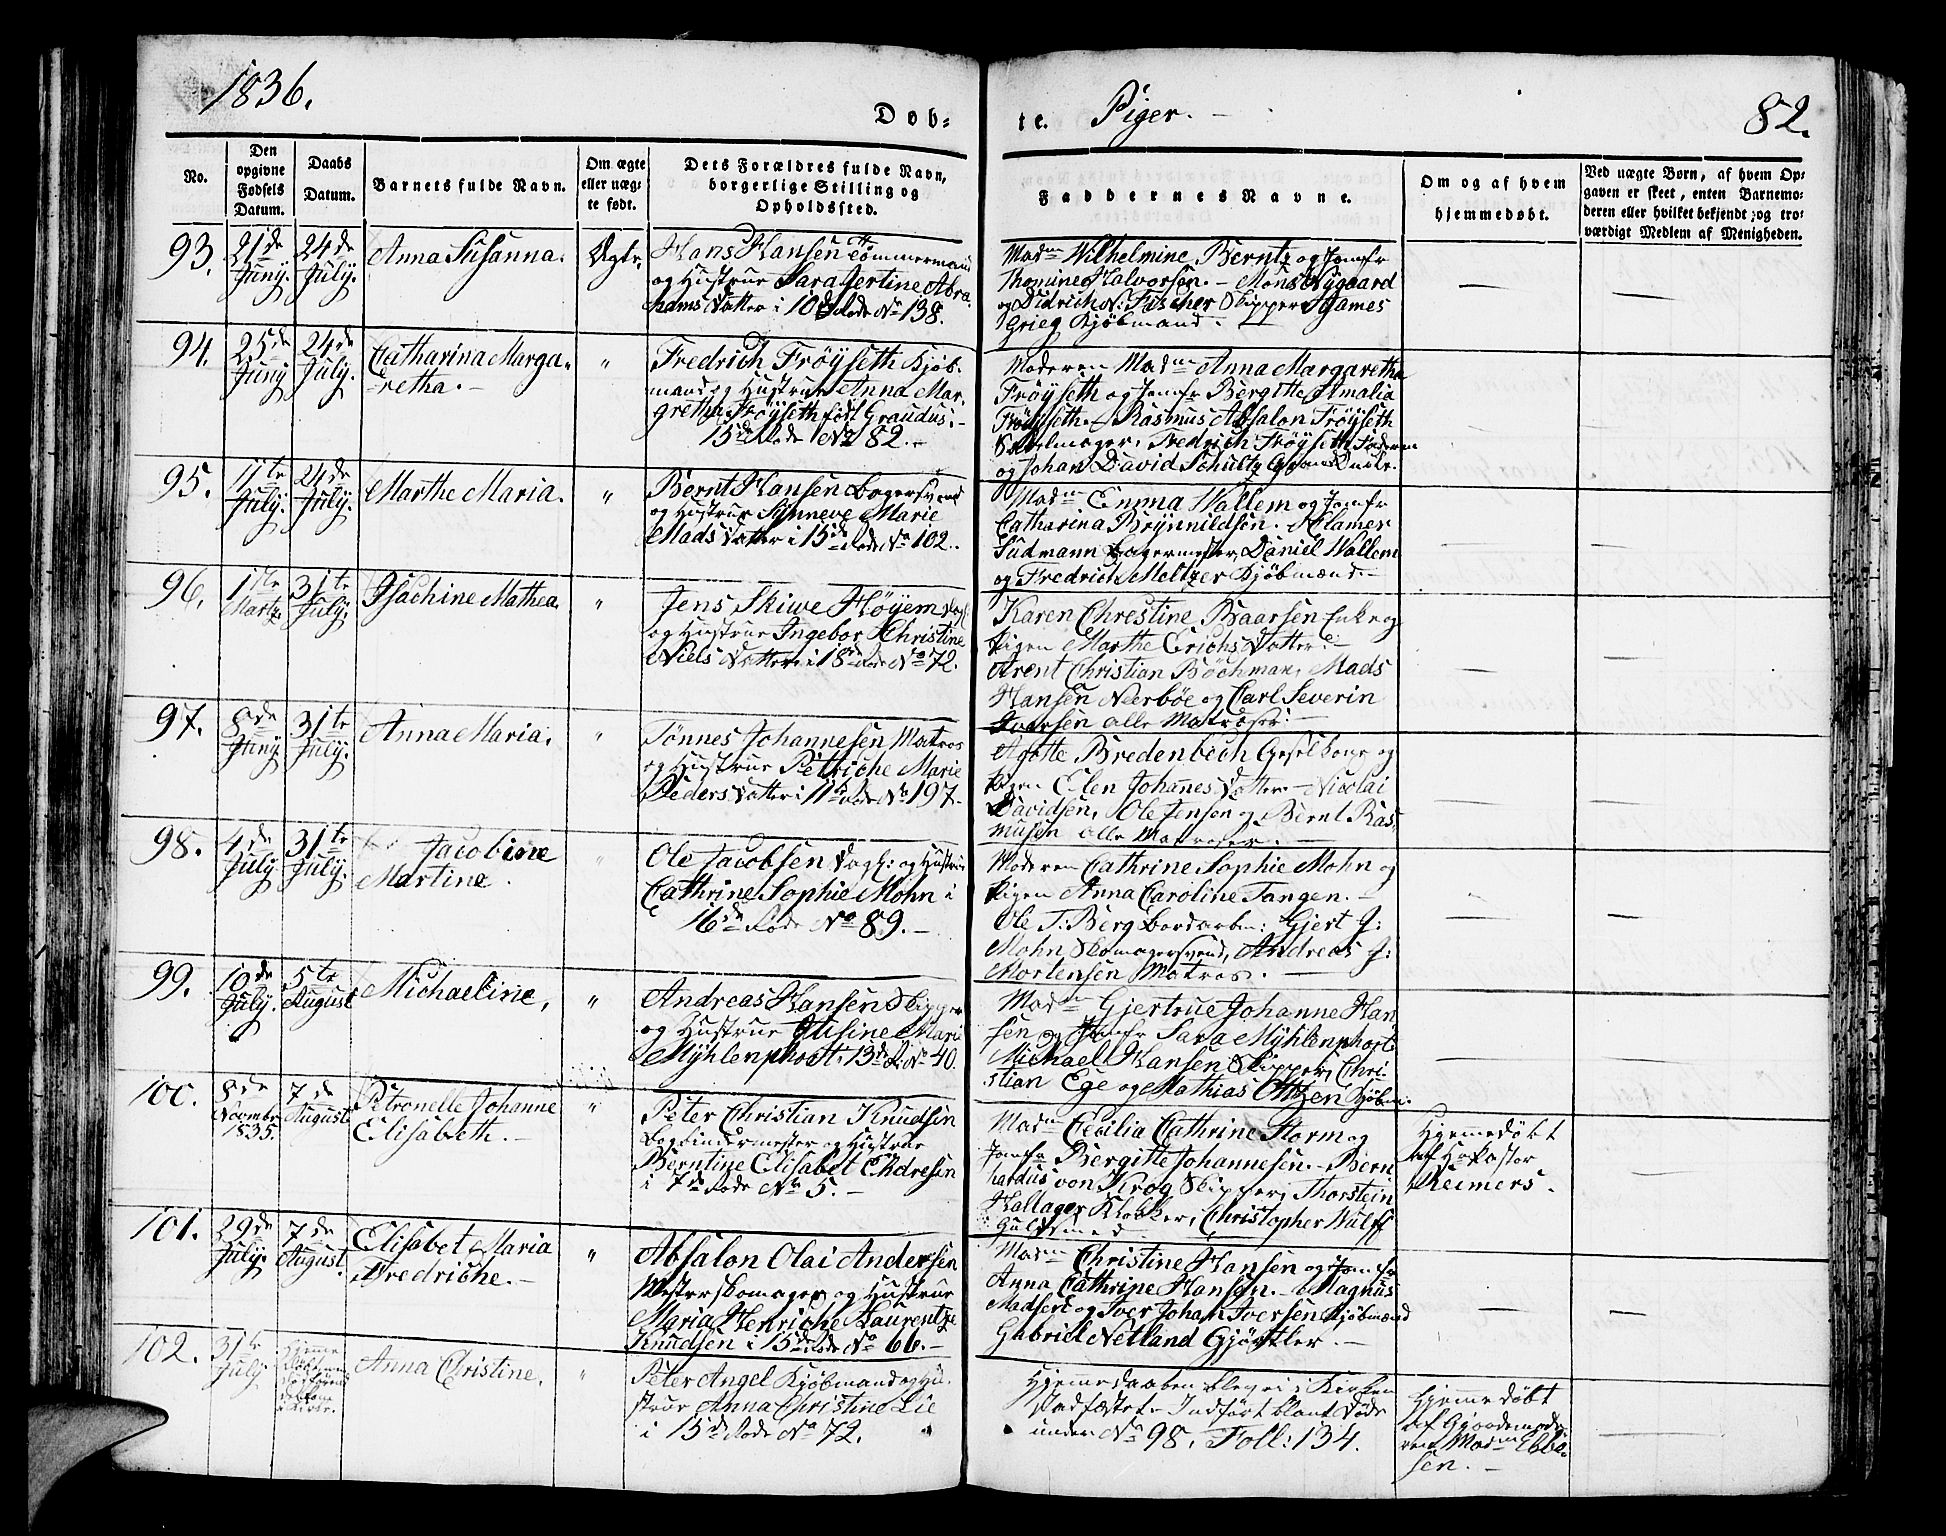 1836.
Døb-
te.
Piger. -
82.
No.
Den
opgivne
Fødsels
Datum.
Daabs
Datum.
Barnets fulde Navn.
Om ægte
eller uæg-
te født.
Dets Forældres fulde Navn,
borgerlige Stilling og
Opholdssted.
Faddernes Navne.
Om og af hvem
hjemmedøbt.
Ved uægte Børn, af hvem Op-
gaven er skeet, enten Barnemo-
deren eller hvilket bekjendt og tro-
værdigt Medlem af Menigheden.
93.
21de
Juny.
24de
July.
Anna Susanna.
Ægte.
Hans Hansen Tömmermand
og Hustrue Sara Gertine Abra
hams Datter i 10de Rode No 138.
Madm Wilhelmine Berntz og Jomfr
Thomine Halvorsen. - Mons Nygaard
og Didrich N: Fischer Skipper James
Grieg Kjøbmand.
94.
25de
Juny
24de
July.
Catharina Marga-
retha. -
"
Fredrich Frøyseth Kjøb-
mand og Hustrue Anna Mar-
gretha Frøyseth født Graudus. -
15de Rode No 82. -
Moderen Madm Anna Margaretha
Frøyseth og Jomfr Bergitte Amalia
Frøyseth. - Rasmus Absalon Frøyseth
Fredrich Frøyseth Faderen
og Johan David Schultz
95.
11te
July.
24de
July.
Marthe Maria.
"
Bernt Hansen Bagersvend
og Hustrue Synneve Marie
Mads Datter i 15de Rode No 102.
Madm Emma Wallem og Jomfr
Catharina Brynnildsen. - Clamer
Sudmann Bagermester, Daniel Wallem
og Fredrich Meltzer Kjøbmænd. -
96.
1te
Martz.
31te
July.
Isachine Mathea.
"
Jens Skiwe Høyem Dagk:
og Hustrue Ingebor Christine
Niels Datter i 18de Rode No 72.
Karen Chrestine Baarsen Enke og
Pigen Marthe Erichs Datter. -
Arent Christian Bøchman, Mads
Hansen Neerbøe og Carl Severin
Iversen alle Matroser. -
97.
8de
Juny
31te
July.
Anna Maria.
"
Tønnes Johannesen Matros
og Hustrue Petriche Marie
Peders Datter i 11te Rode No 197.
Agatte Bredenbech og
Pigen Elen Johannes Datter - Nicolai
Davidsen, Ole Jensen og Bernt Ras
musen alle Matroser. -
98.
4de
July
31te
July.
Jacobine
Martine.
"
Ole Jacobsen Dagk: og Hustrue
Cathrine Sophie Mohn i
16de Rode No 89. -
Moderen Cathrine Sophie Mohn og
Pigen Anna Caroline Tangen. -
Ole T: Berg Bordarbm: Gjert J:
Mohn Skomagersvend, Andreas J:
Mortensen Matros. -
99.
10de
July.
5te
August
Michaeline,
"
Andreas Hansen Skipper
og Hustrue Elisine Marie
Mÿhlenphort i 13de R: No 40.
Madm Gjertrue Johanne Han
sen og Jomfr Sara Mÿhlenphort
Michael Hansen Skipper, Chri-
stian Ege og Mathias Ottzen Kjøbm.
100.
8de
Novembr
1835.
7de
August
Petronelle Johanne
Elisabeth. -
"
Peter Christian Knudsen
Bogbindermester og Hustrue
Berntine Elisabet Endresen
i 7de Rode No 5. -
Madm Cecilia Cathrine Storm og
Jomfr Bergitte Johannesen. - Bern
hardus von Krog Skipper, Thorstein
Hallager Klokker, Christopher Wulff
Guldsmed
Hjemmedøbt
af Hr Pastor
Reimers.
101.
29de
July.
7de
August.
Elisabet Maria
Fredriche. -
"
Absalon Olai Andersen
Mesterskomager og Hustrue
Maria Henriche Laurentze
Knudsen i 15de Rode No 66. -
Madm Christine Hansen og Jomfr
Anna Cathrine Hansen. - Magnus
Madsen og Iver Johan Iversen Kjøbmænd
Gabriel Netland Gjørtler. -
102.
31te
July
Anna Christine.
"
Peter Angel Kjøbmand og Hu-
strue Anna Christine Lie
i 15de Rode No 72.
Hjemmedaaben blev ei i Kirken
Stadfæstet - Indført blant Døde
under No 98. Foll: 134.
Hjemmedøbt
af Gjordemode-
ren Madm Ebbe-
sen. -